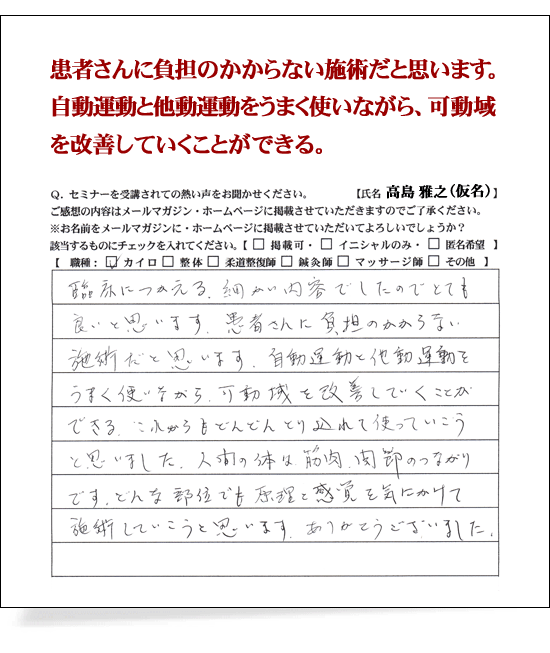 患者さんに負担のかからない施術だと思います。
自動運動と他動運動をうまく使いながら、可動域
を改善していくことができる。
Q. セミナーを受講されての熱い声をお聞かせください。 【氏名 高島 雅之(仮名)】
ご感想の内容はメールマガジン・ホームページに掲載させていただきますのでご了承ください。
※お名前をメールマガジンに・ホームページに掲載させていただいてよろしいでしょうか?
該当するものにチェックを入れてください。【 □ 掲載可・ □ イニシャルのみ・ □ 匿名希望 】
【 職種: ☑ カイロ □ 整体 □ 柔道整復師 □ 鍼灸師 □ マッサージ師 □ その他 】
臨床につかえる、細かい内容でしたのでとても
良いと思います。患者さんに負担のかからない
施術だと思います。自動運動と他動運動を
うまく使いながら、可動域を改善していくことが
できる。これからもどんどんとり込れて使っていこう
と思いました。人間の体は筋肉、関節のつながり
です。どんな部位でも原理と感覚を気にかけて
施術していこうと思います。ありがとうございました。